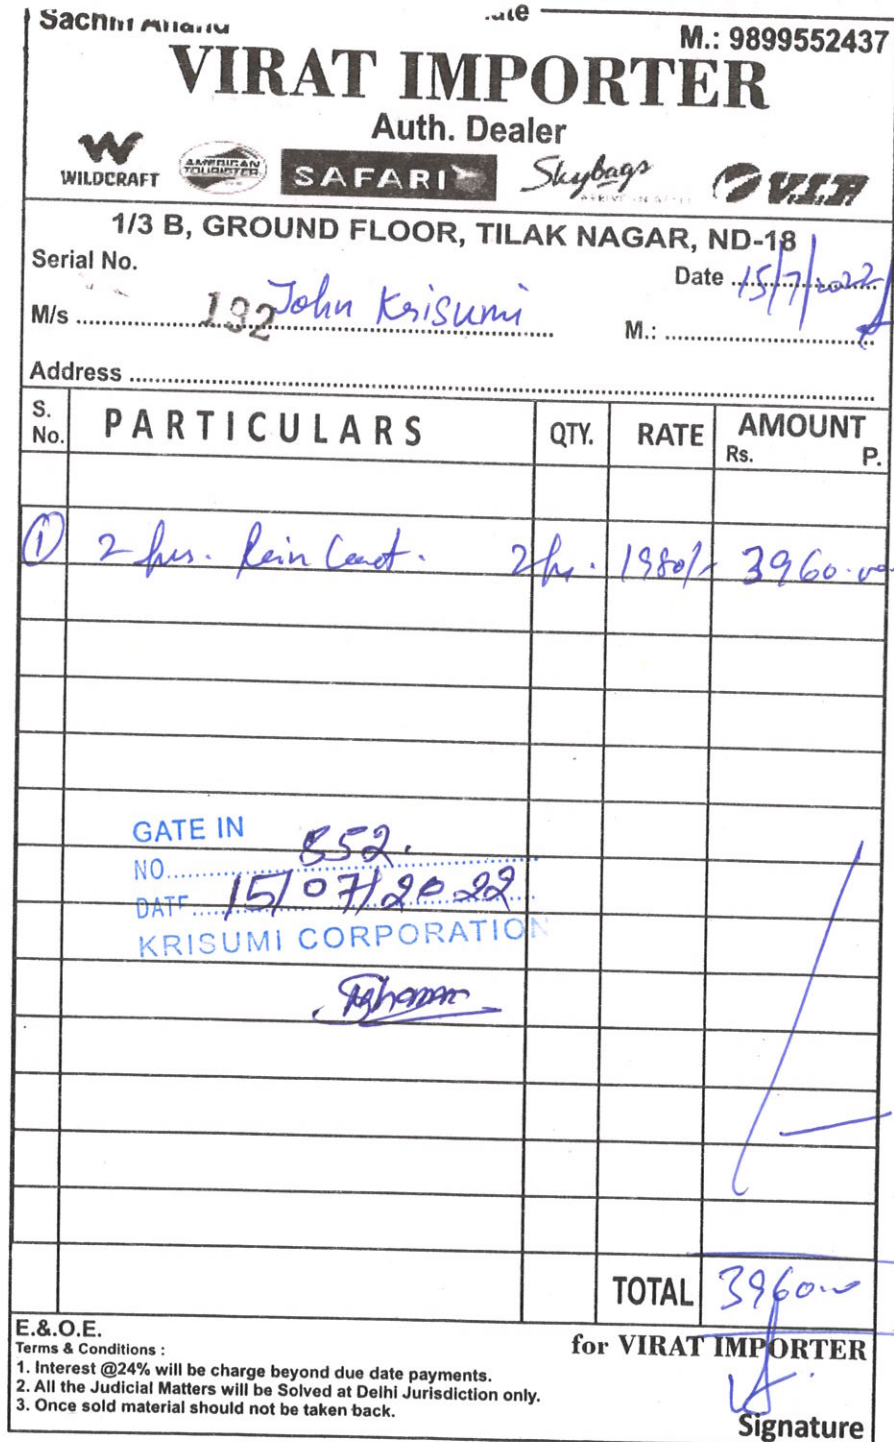 Sachin Anand
M.: 9899552437
VIRAT IMPORTER
Auth. Dealer
WILDCRAFT AMERICAN TOURISTER SAFARI Skybags V.I.P
1/3 B, GROUND FLOOR, TILAK NAGAR, ND-18
Serial No. Date 15/7/2022
M/s 192 John Krisumi M.:
Address
S. No. PARTICULARS QTY. RATE AMOUNT
Rs. P.
1 2 pcs. Rain Coat. 2 pc. 1980/- 3960.00
GATE IN
NO. 852.
DATE 15/07/2022
KRISUMI CORPORATION
TOTAL 3960.00
E.&.O.E.
for VIRAT IMPORTER
Terms & Conditions :
1. Interest @24% will be charge beyond due date payments.
2. All the Judicial Matters will be Solved at Delhi Jurisdiction only.
3. Once sold material should not be taken back.
Signature